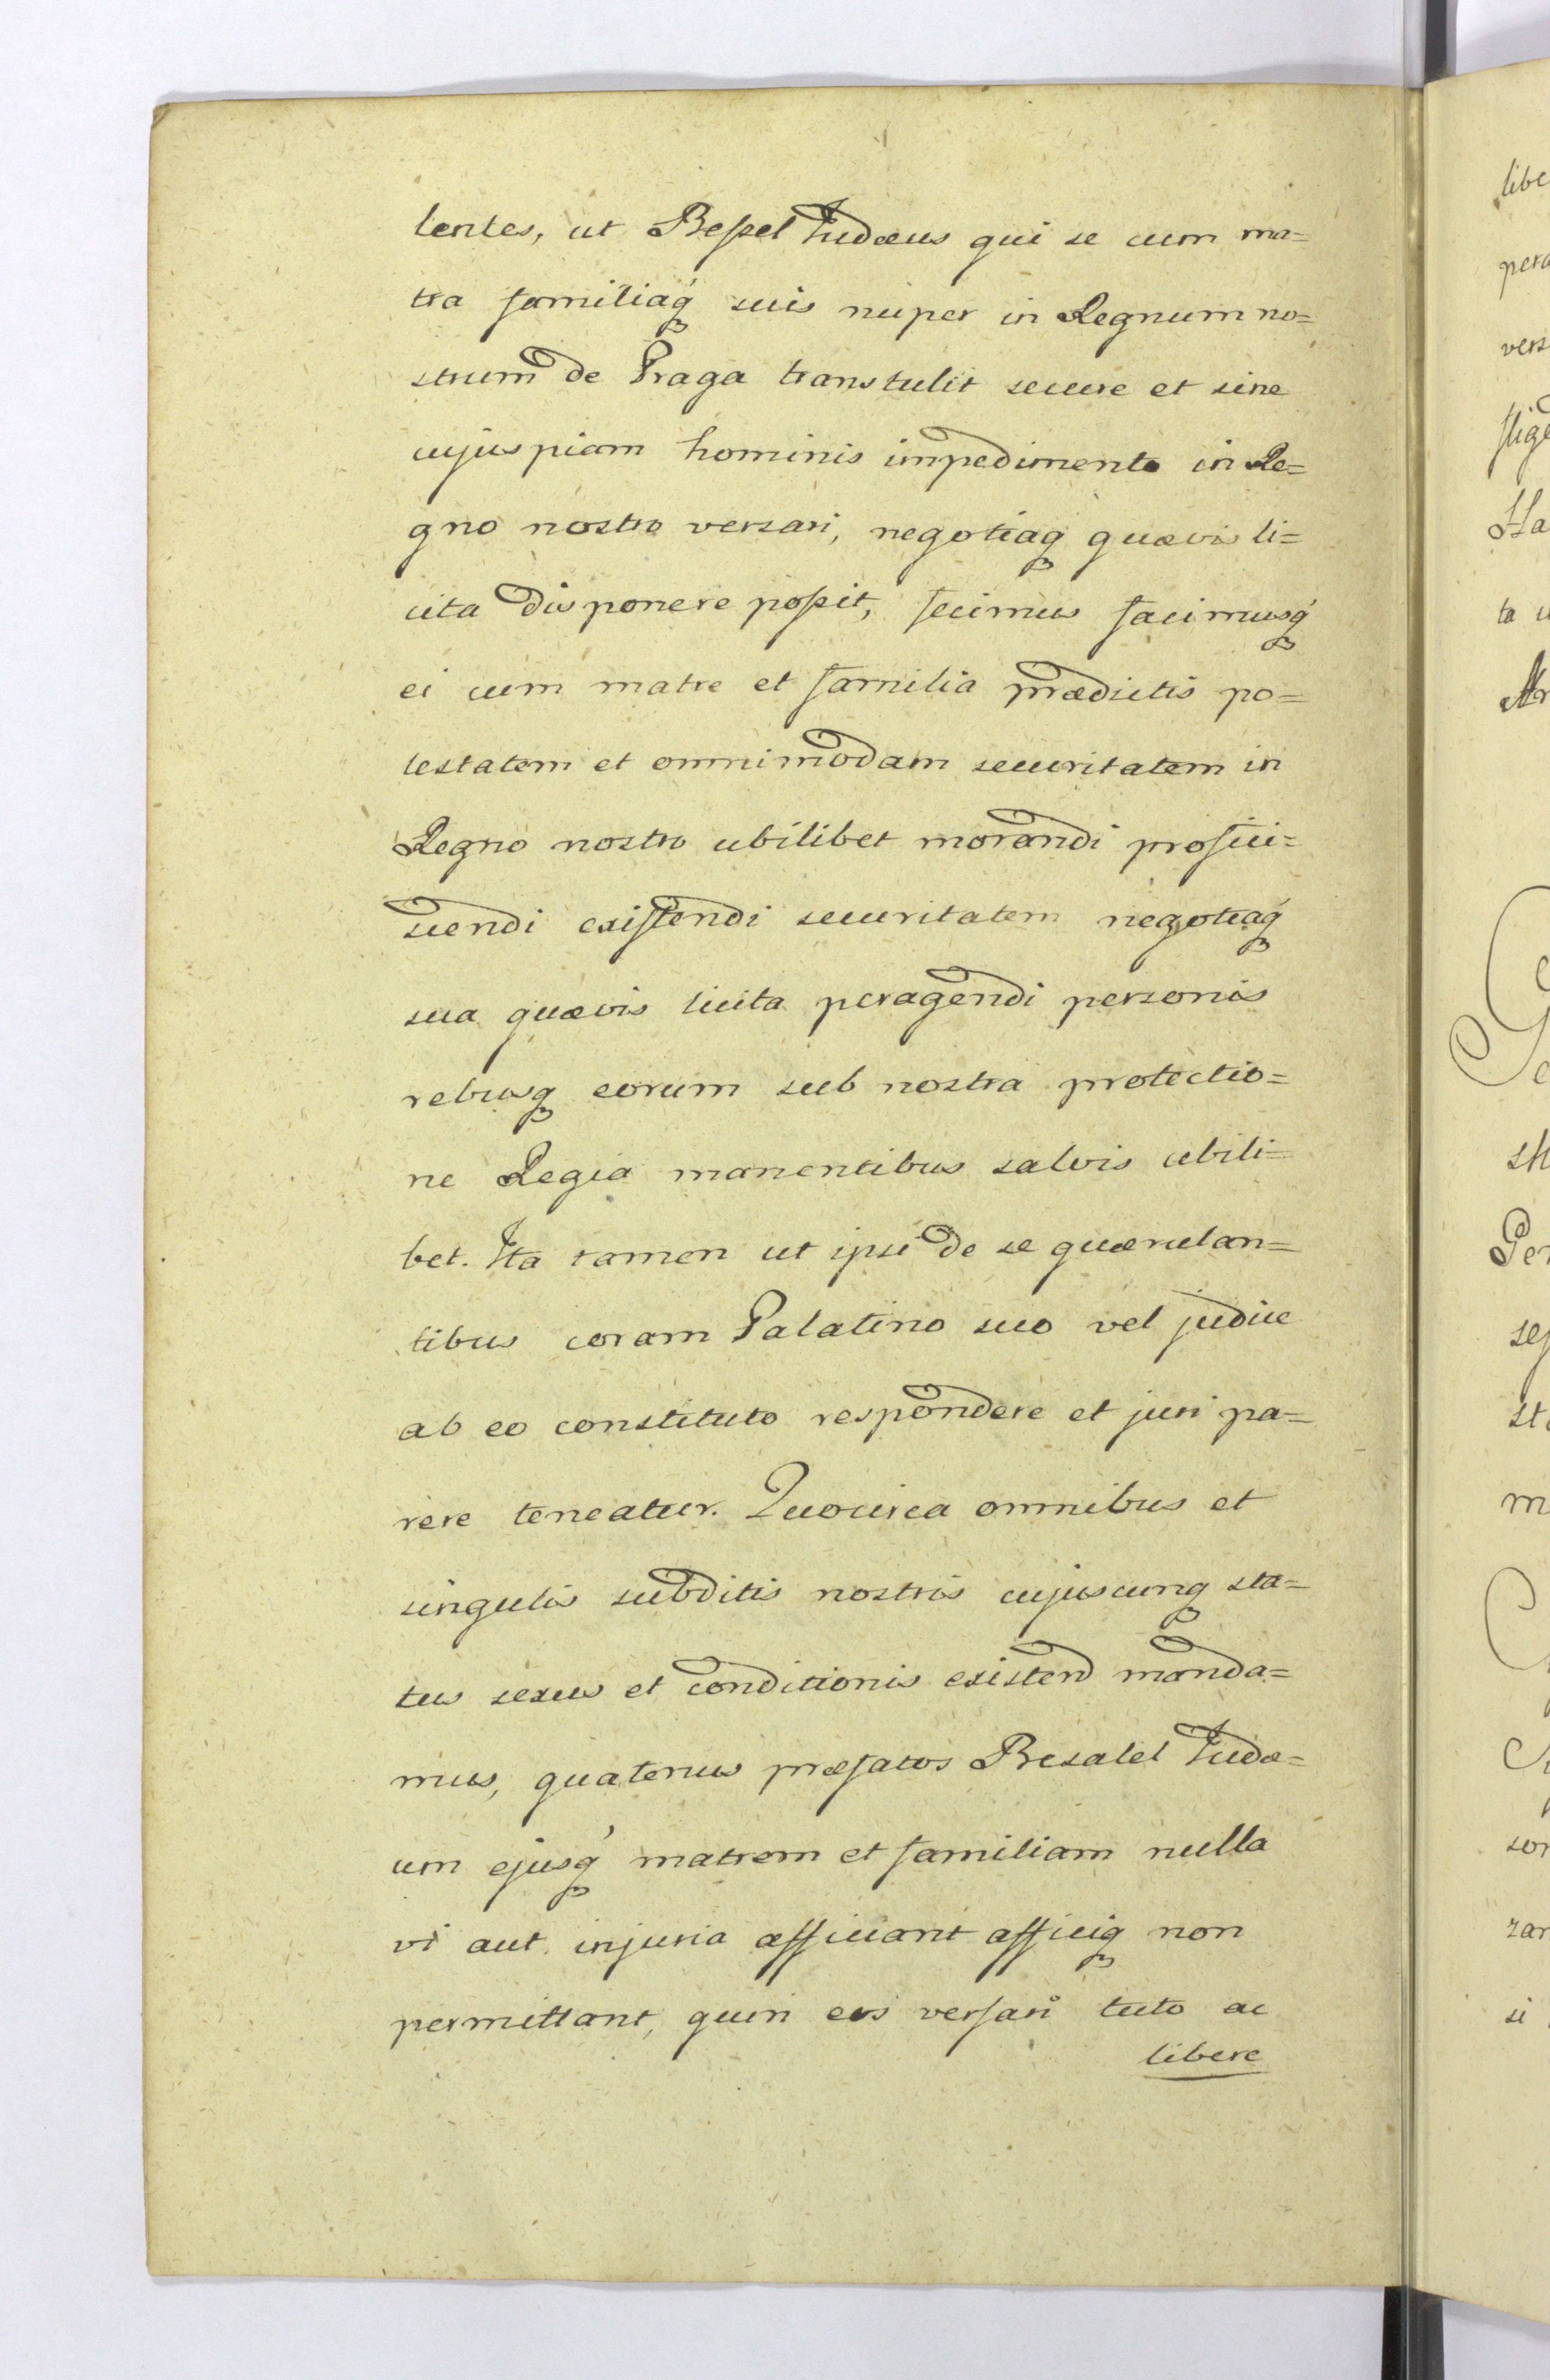 lentes, ut Beſsel Judæus qui se cum ma=
tra familiaq́ suis nuper in Regnum no=
strum de Praga transtulit secure et sine
cujuspiam hominis impedimento in Re=
gno nostro versari, negotiaq quævis li=
cita disponere poſsit, fecimus facimusq́
ei cum matre et familia prædictis po=
testatem et omnimodam securitatem in
Regno nostro ubilibet morandi profici=
scendi exiſtendi securitatem negotiaq́
sua quævis licita peragendi personis
rebusq eorum sub nostra protectio=
ne Regia manentibus salvis ubili=
bet. Ita tamen ut ipsi de se quærulan=
tibus coram Palatino suo vel judice
ab eo constituto respondere et juri pa=
rere teneatur. Quocirca omnibus et
singulis subditis nostris cujuscunq sta=
tus sexus et conditionis existend manda=
mus, quatenus præfatos Besalel Judæ=
um ejusq́ matrem et familiam nulla
vi aut injuria afficiant afficiq non
permittant, quin eos verſari tuto ac
libere
libe
pera
vers
Ha
ta
sh
Per
st
m
sor
zar
si